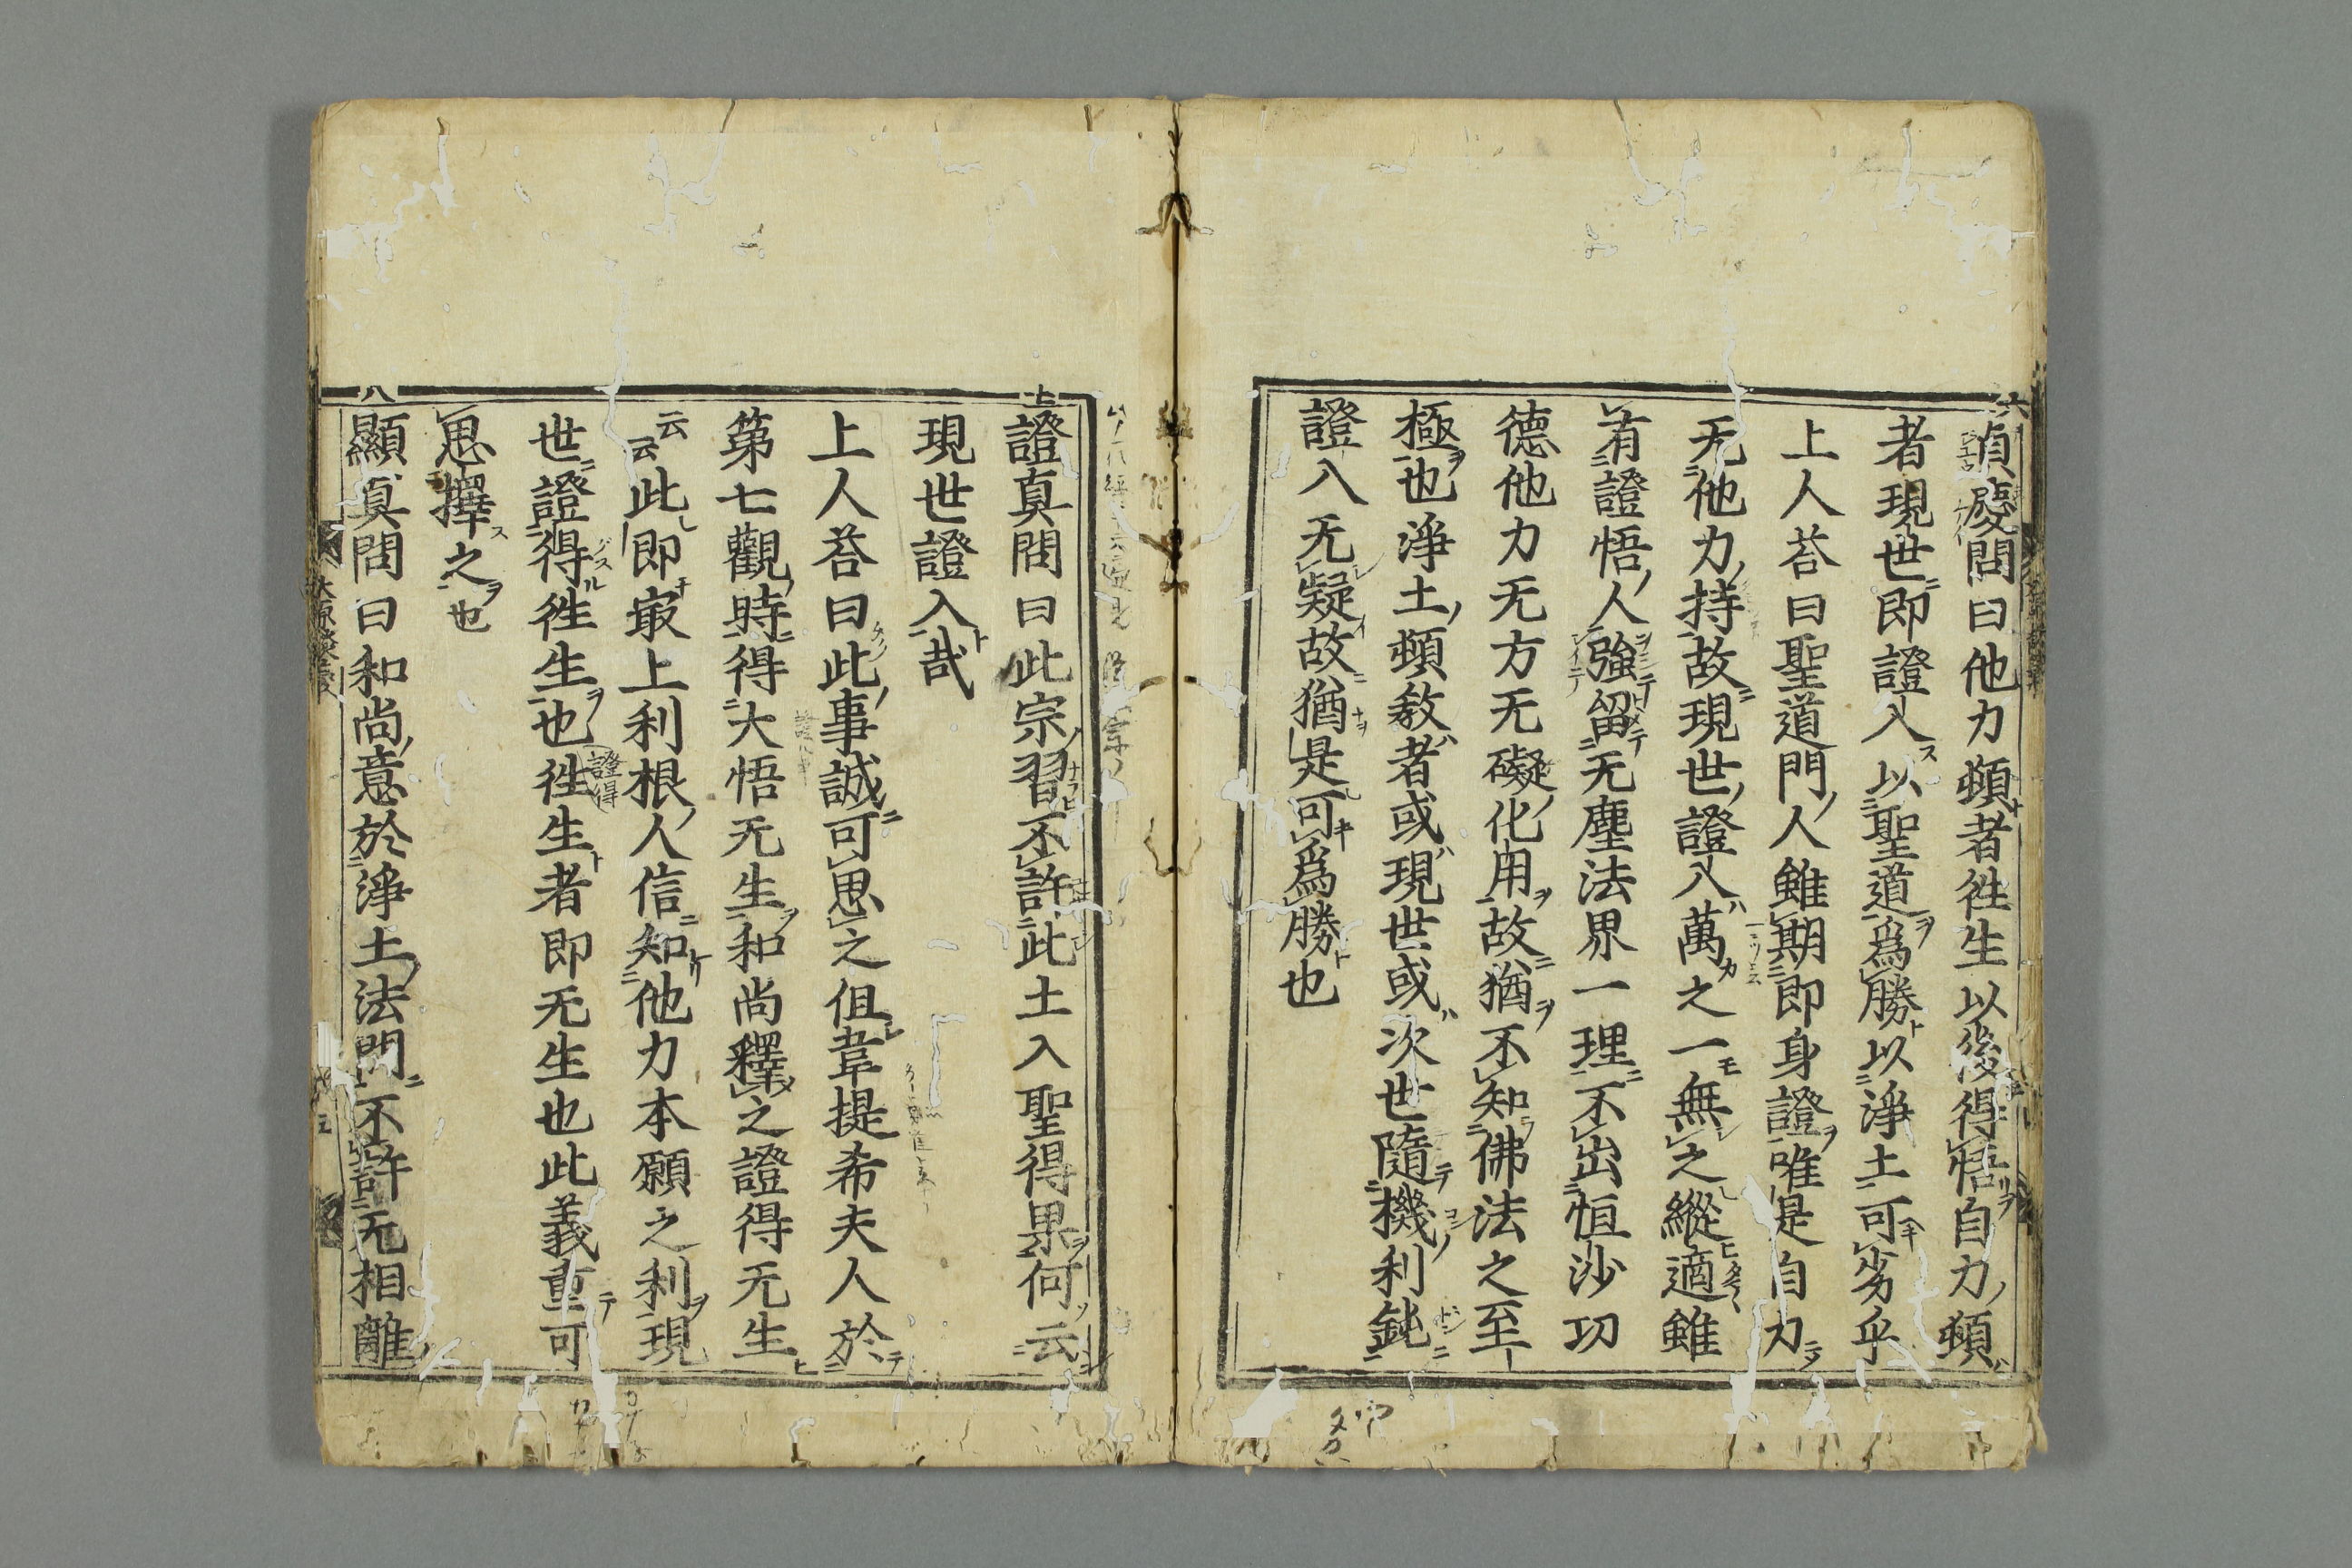 六
貞慶問曰他力頓者徃生以後得悟自力頓
者現世即證入以聖道爲勝以淨土可劣乎
上人荅曰聖道門人雖期即身證唯是自力
无他力持故現世證入萬之一無之縱適雖
有證悟人強留无塵法界一理不出恒沙功
德他力无方无礙化用故猶不知佛法之至
極也淨土頓教者或現世或次世隨機利鈍
證入无疑故猶是可爲勝也
七
證真問曰此宗習不許此土入聖得果何云
現世證入哉
上人荅曰此事誠可思之但韋提希夫人於
第七觀時得大悟无生和尚釋之證得无生
云云此即㝡上利根人信知他力本願之利現
世證得徃生也徃生者即无生也此義重可
證得
思擇之也
八
顯真問曰和尚意於淨土法門不許无相離